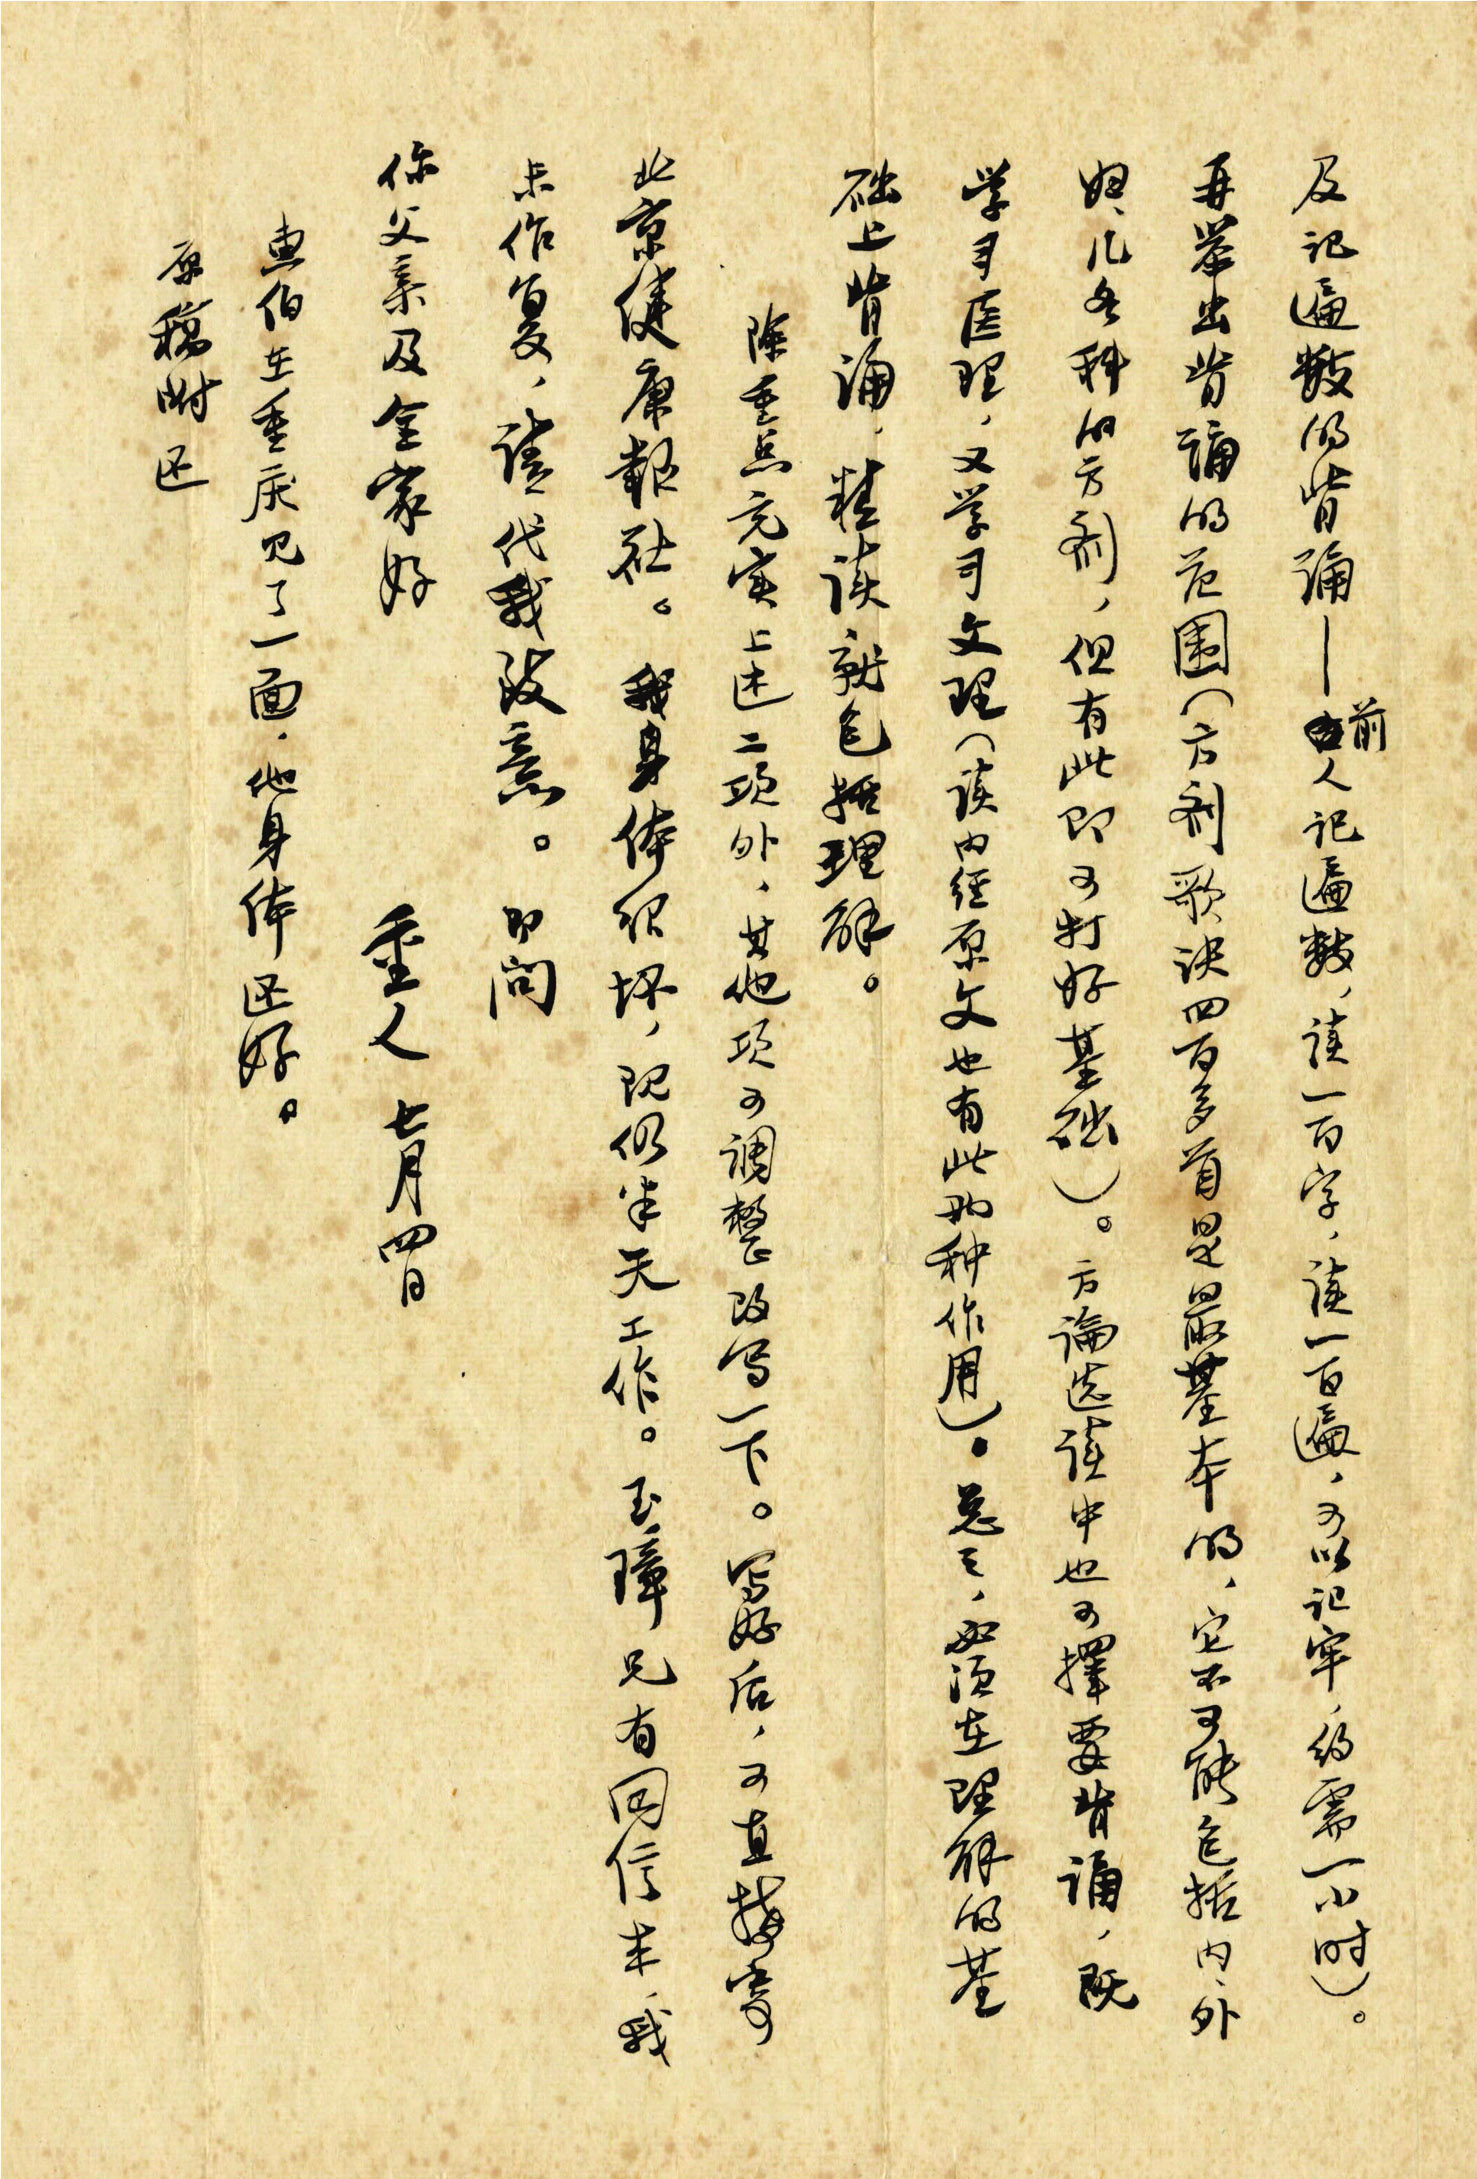 及记遍数的背诵——前人记遍数，读一百字，读一百遍，可以记牢，约需一小时）。
再举出背诵的范围（方剂歌诀四百多首是最基本的，它不可能包括内、外、
妇、儿各科的方剂，但有此即可打好基础）。方论选读中也可择要背诵，既
学习医理，又学习文理（读内经原文也有此两种作用）。总之，必须在理解的基
础上背诵，精读就包括理解。
除重点充实上述二项外，其他项可调整改写一下。写好后，可直接寄
北京健康报社。我身体很坏，现仍半天工作。玉璋兄有回信来，我
未作复，请代我致意。即问
你父亲及全家好
重人 七月四日
惠伯在重庆见了一面，他身体还好。
原稿附还